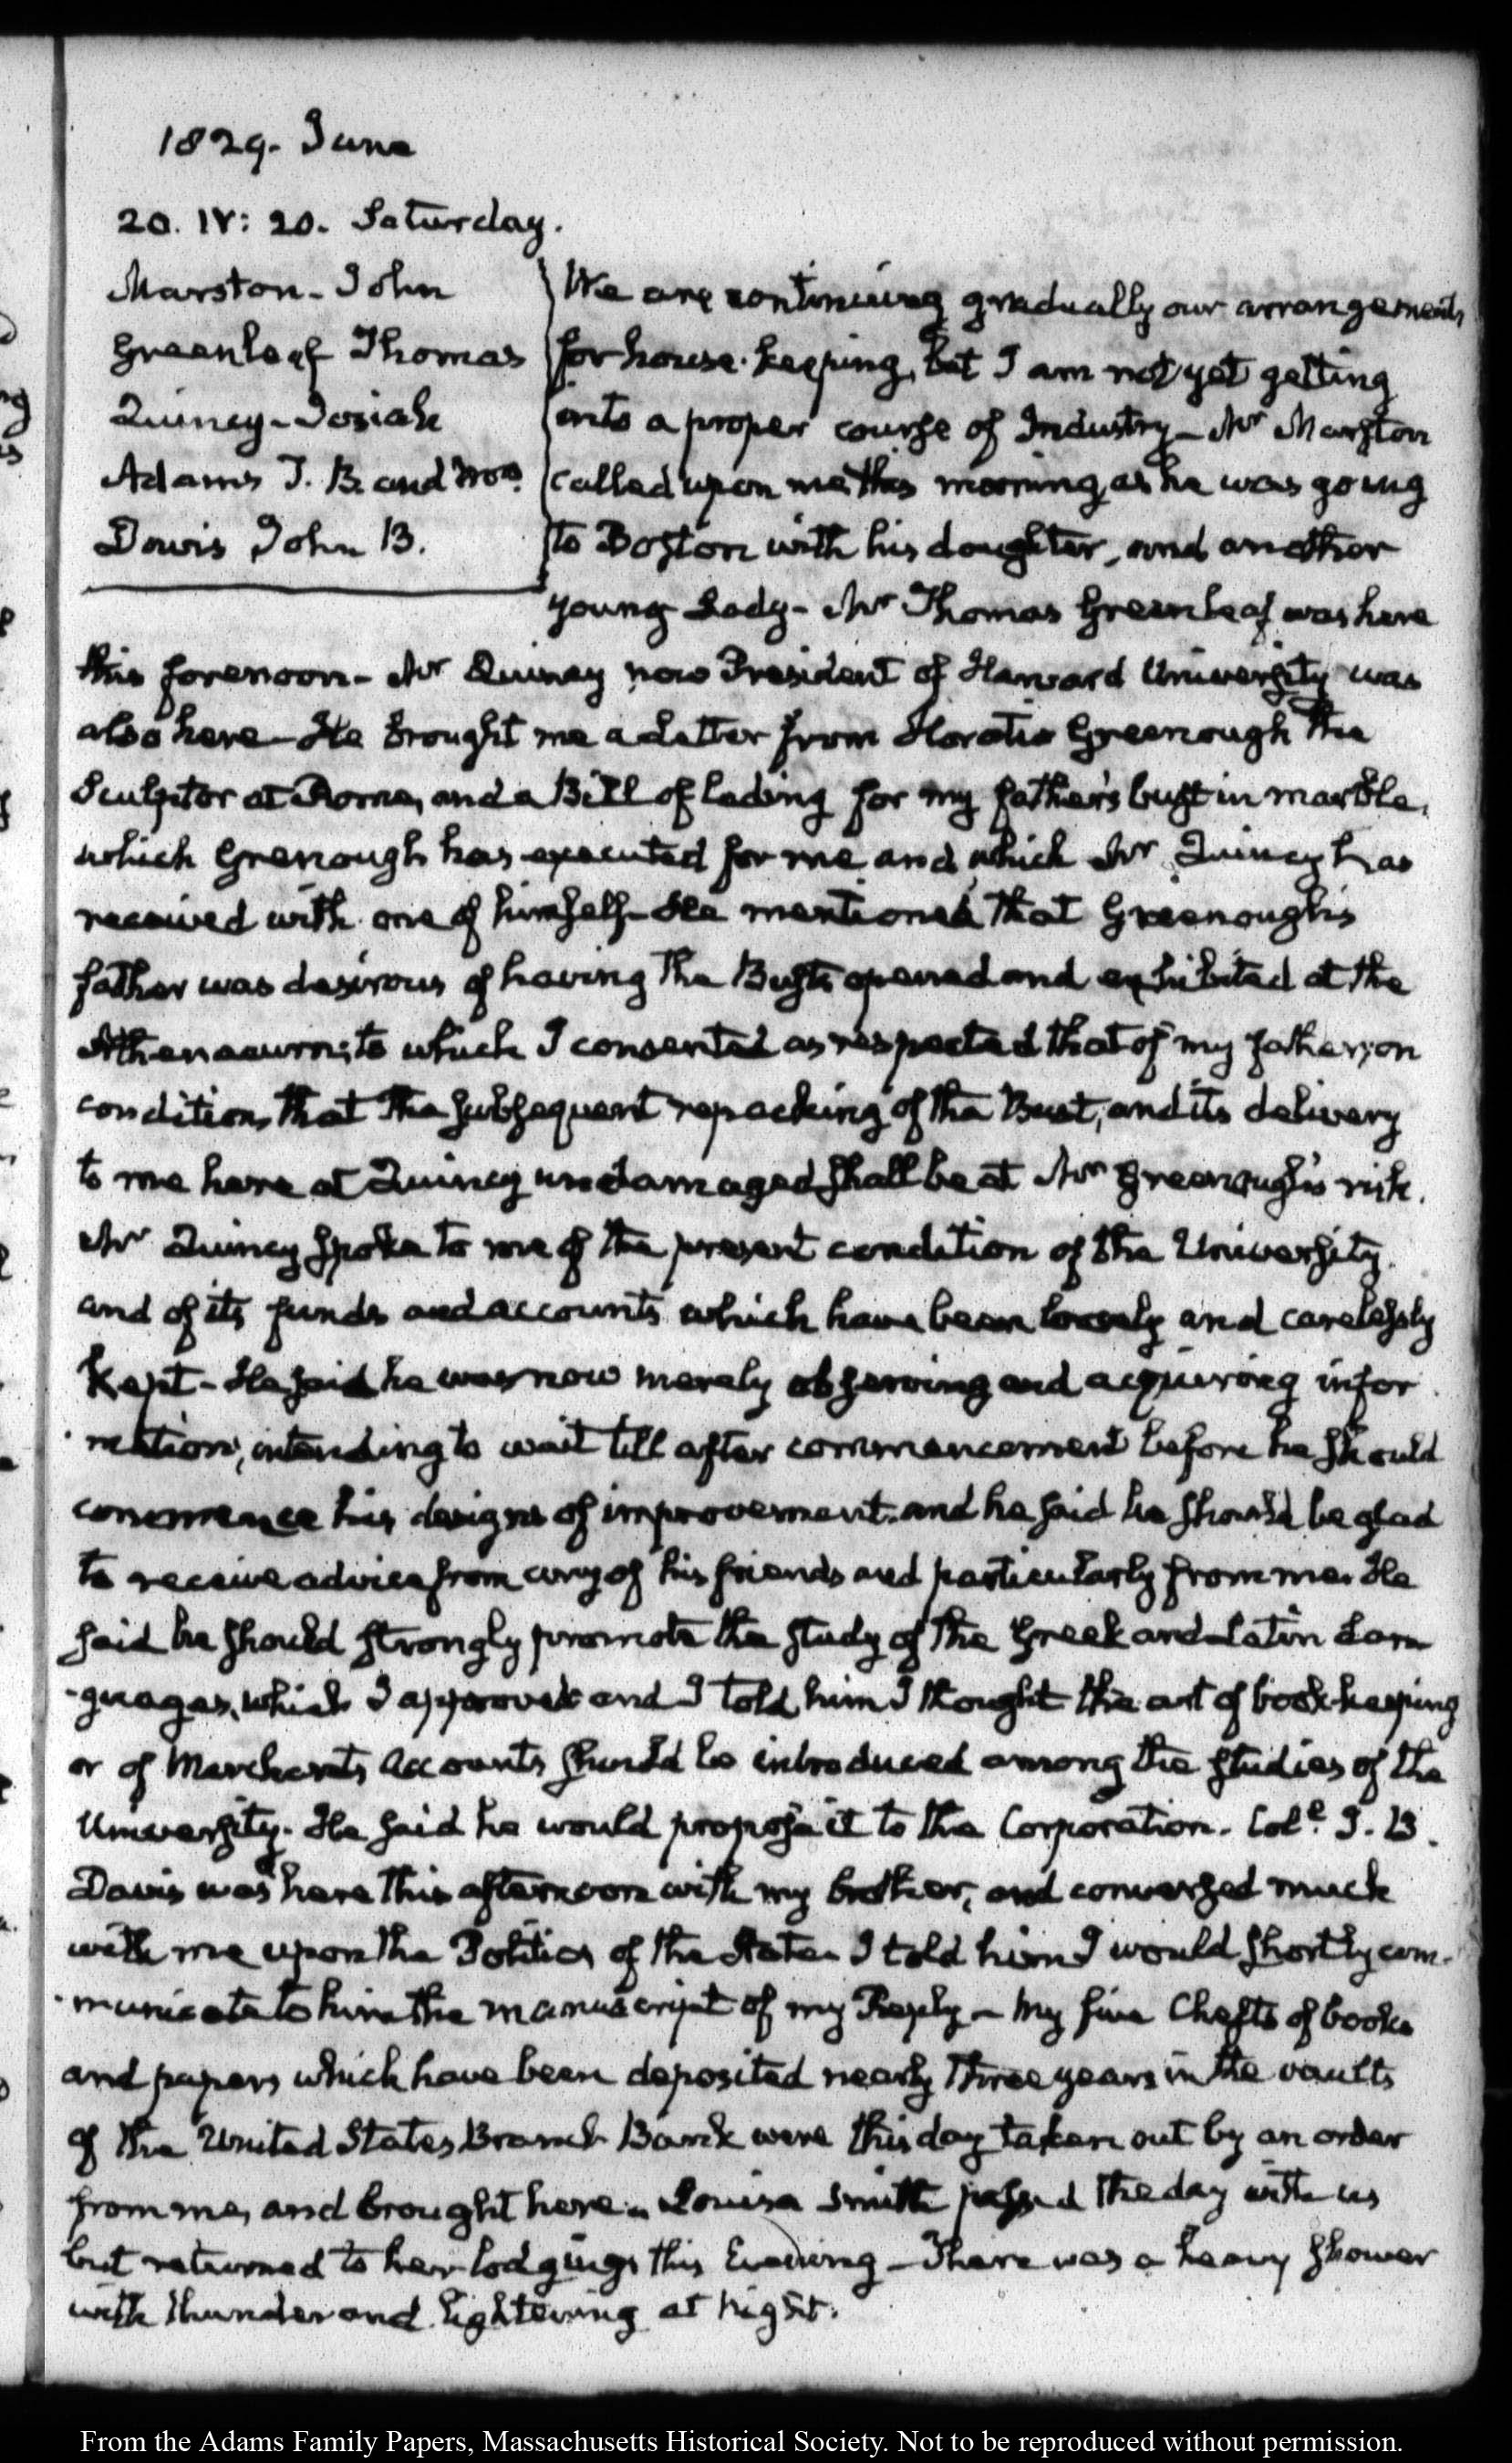 1829. June
20. IV: 20. Saturday.
Marston - John
Greenleaf Thomas
Quincy - Josiah
Adams T. B. and Mrs.
Davis John B.
We are continuing gradually our arrangements
for house-keeping, but I am not yet getting
into a proper course of Industry - Mr Marston
called upon me this morning, as he was going
to Boston with his daughter, and another
young Lady - Mr Thomas Greenleaf was here
this forenoon - Mr Quincy now President of Harvard University was
also here - He brought me a Letter from Horatio Greenough the
Sculptor at Rome, and a Bill of lading for my father's bust in marble,
which Grenough has executed for me and which Mr Quincy has
received with one of himself - He mentioned that Greenough's
father was desirous of having the Busts opened and exhibited at the
Athenaeum; to which I consented as respected that of my father; on
condition that the subsequent repacking of the Bust, and its delivery
to me here at Quincy undamaged shall be at Mr Greenough's risk.
Mr Quincy spoke to me of the present condition of the University
and of its funds and accounts which have been loosely and carelessly
kept - He said he was now merely observing and acquiring infor
mation, intending to wait till after commencement before he should
commence his designs of improvement. and he said he should be glad
to receive advice from any of his friends and particularly from me. He
said he should strongly promote the study of the Greek and Latin Lan
-guages, which I approved and I told him I thought the art of book-keeping
or of Merchants Accounts should be introduced among the studies of the
University. He said he would propose it to the Corporation. Col.l J. B.
Davis was here this afternoon with my brother, and conversed much
with me upon the Politics of the State - I told him I would shortly com-
-municate to him the manuscript of my Reply - My five Chests of books
and papers which have been deposited nearly three years in the vaults
of the United States Branch Bank were this day taken out by an order
from me, and brought here - Louisa Smith passed the day with us
but returned to her lodgings this Evening - There was a heavy shower
with thunder and lightening at Night.
From the Adams Family Papers, Massachusetts Historical Society. Not to be reproduced without permission.